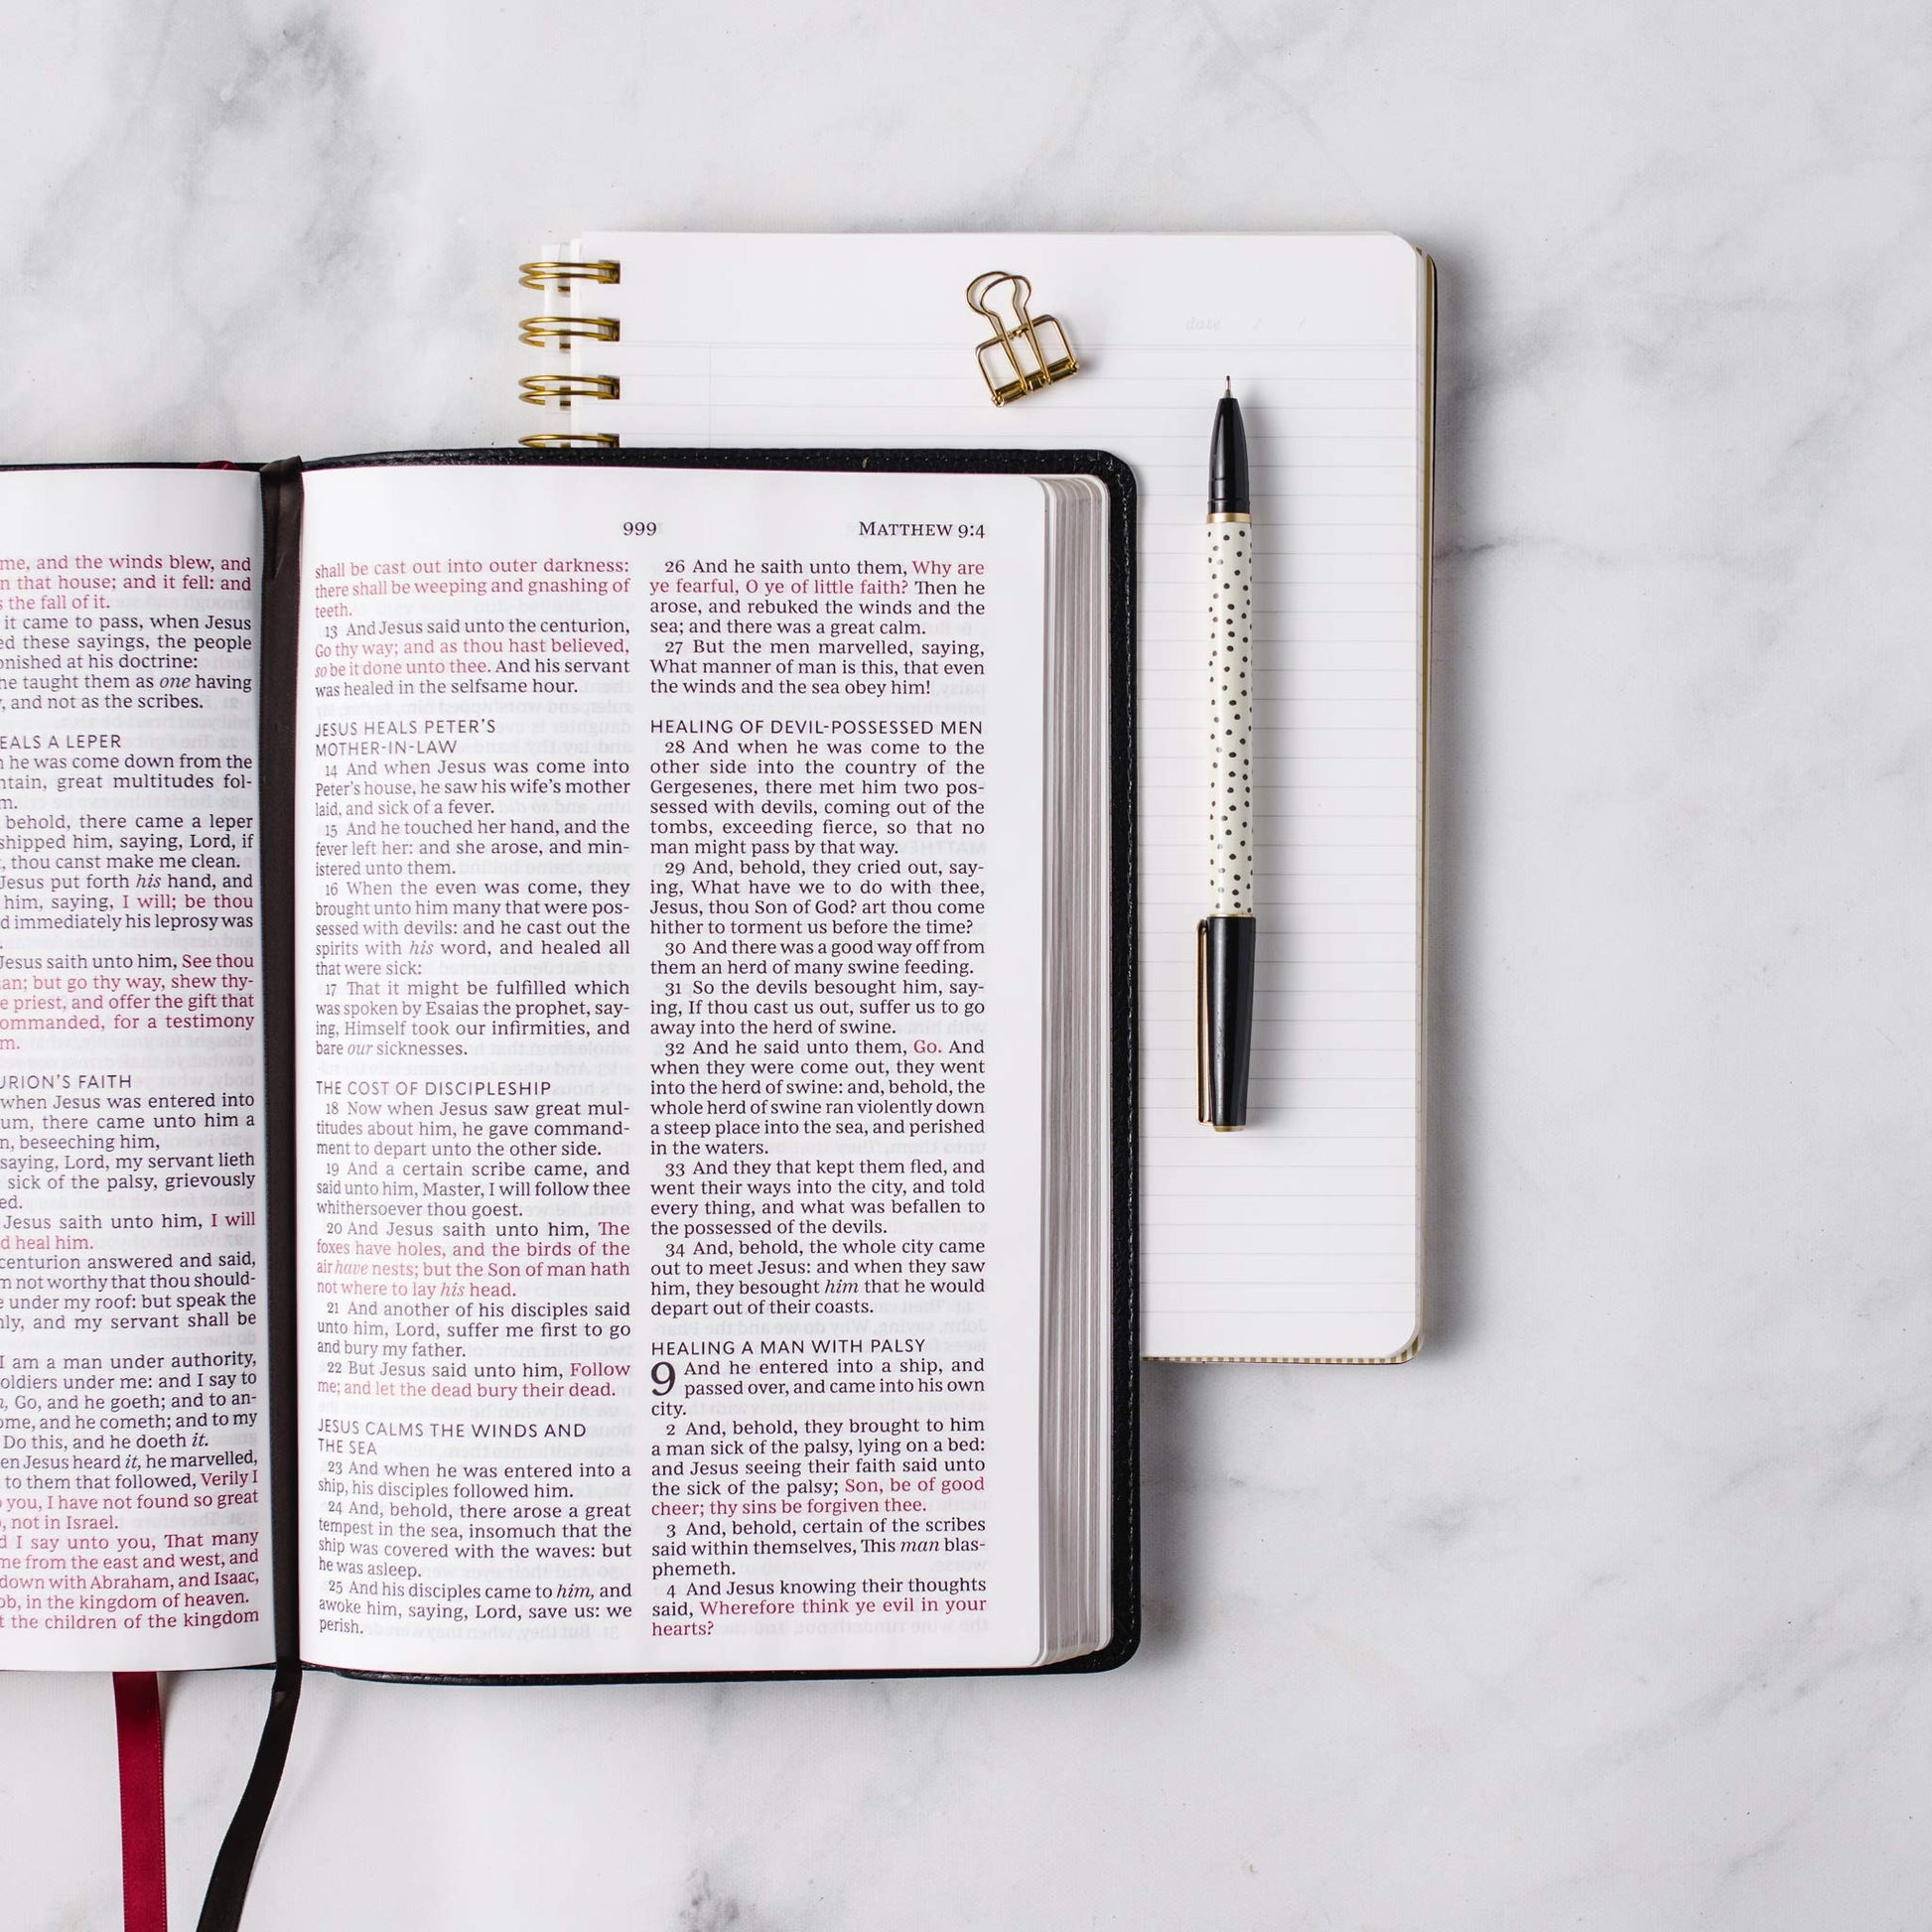 me, and the winds blew, and
that house; and it fell: and
the fall of it.
it came to pass, when Jesus
these sayings, the people
at his doctrine:
he taught them as one having
and not as the scribes.
A LEPER
he was come down from the
great multitudes fol-
behold, there came a leper
him, saying, Lord, if
thou canst make me clean.
Jesus put forth his hand, and
him, saying, I will; be thou
immediately his leprosy was
Jesus saith unto him, See thou
but go thy way, shew thy-
priest, and offer the gift that
for a testimony
FAITH
when Jesus was entered into
there came unto him a
beseeching him,
saying, Lord, my servant lieth
sick of the palsy, grievously
Jesus saith unto him, I will
heal him.
centurion answered and said,
not worthy that thou should-
under my roof: but speak the
and my servant shall be
I am a man under authority,
under me: and I say to
Go, and he goeth; and to an-
and he cometh; and to my
Do this, and he doeth it.
Jesus heard it, he marvelled,
to them that followed, Verily I
you, I have not found so great
not in Israel.
I say unto you, That many
from the east and west, and
down with Abraham, and Isaac,
in the kingdom of heaven.
the children of the kingdom
999 MATTHEW 9:4
shall be cast out into outer darkness:
there shall be weeping and gnashing of
teeth.
13 And Jesus said unto the centurion,
Go thy way; and as thou hast believed,
so be it done unto thee. And his servant
was healed in the selfsame hour.
JESUS HEALS PETER'S
MOTHER-IN-LAW
14 And when Jesus was come into
Peter's house, he saw his wife's mother
laid, and sick of a fever.
15 And he touched her hand, and the
fever left her: and she arose, and min-
istered unto them.
16 When the even was come, they
brought unto him many that were pos-
sessed with devils: and he cast out the
spirits with his word, and healed all
that were sick:
17 That it might be fulfilled which
was spoken by Esaias the prophet, say-
ing, Himself took our infirmities, and
bare our sicknesses.
THE COST OF DISCIPLESHIP
18 Now when Jesus saw great mul-
titudes about him, he gave command-
ment to depart unto the other side.
19 And a certain scribe came, and
said unto him, Master, I will follow thee
whithersoever thou goest.
20 And Jesus saith unto him, The
foxes have holes, and the birds of the
air have nests; but the Son of man hath
not where to lay his head.
21 And another of his disciples said
unto him, Lord, suffer me first to go
and bury my father.
22 But Jesus said unto him, Follow
me; and let the dead bury their dead.
JESUS CALMS THE WINDS AND
THE SEA
23 And when he was entered into a
ship, his disciples followed him.
24 And, behold, there arose a great
tempest in the sea, insomuch that the
ship was covered with the waves: but
he was asleep.
25 And his disciples came to him, and
awoke him, saying, Lord, save us: we
perish.
26 And he saith unto them, Why are
ye fearful, O ye of little faith? Then he
arose, and rebuked the winds and the
sea; and there was a great calm.
27 But the men marvelled, saying,
What manner of man is this, that even
the winds and the sea obey him!
HEALING OF DEVIL-POSSESSED MEN
28 And when he was come to the
other side into the country of the
Gergesenes, there met him two pos-
sessed with devils, coming out of the
tombs, exceeding fierce, so that no
man might pass by that way.
29 And, behold, they cried out, say-
ing, What have we to do with thee,
Jesus, thou Son of God? art thou come
hither to torment us before the time?
30 And there was a good way off from
them an herd of many swine feeding.
31 So the devils besought him, say-
ing, If thou cast us out, suffer us to go
away into the herd of swine.
32 And he said unto them, Go. And
when they were come out, they went
into the herd of swine: and, behold, the
whole herd of swine ran violently down
a steep place into the sea, and perished
in the waters.
33 And they that kept them fled, and
went their ways into the city, and told
every thing, and what was befallen to
the possessed of the devils.
34 And, behold, the whole city came
out to meet Jesus: and when they saw
him, they besought him that he would
depart out of their coasts.
HEALING A MAN WITH PALSY
9 And he entered into a ship, and
passed over, and came into his own
city.
2 And, behold, they brought to him
a man sick of the palsy, lying on a bed:
and Jesus seeing their faith said unto
the sick of the palsy; Son, be of good
cheer; thy sins be forgiven thee.
3 And, behold, certain of the scribes
said within themselves, This man blas-
phemeth.
4 And Jesus knowing their thoughts
said, Wherefore think ye evil in your
hearts?
date / /